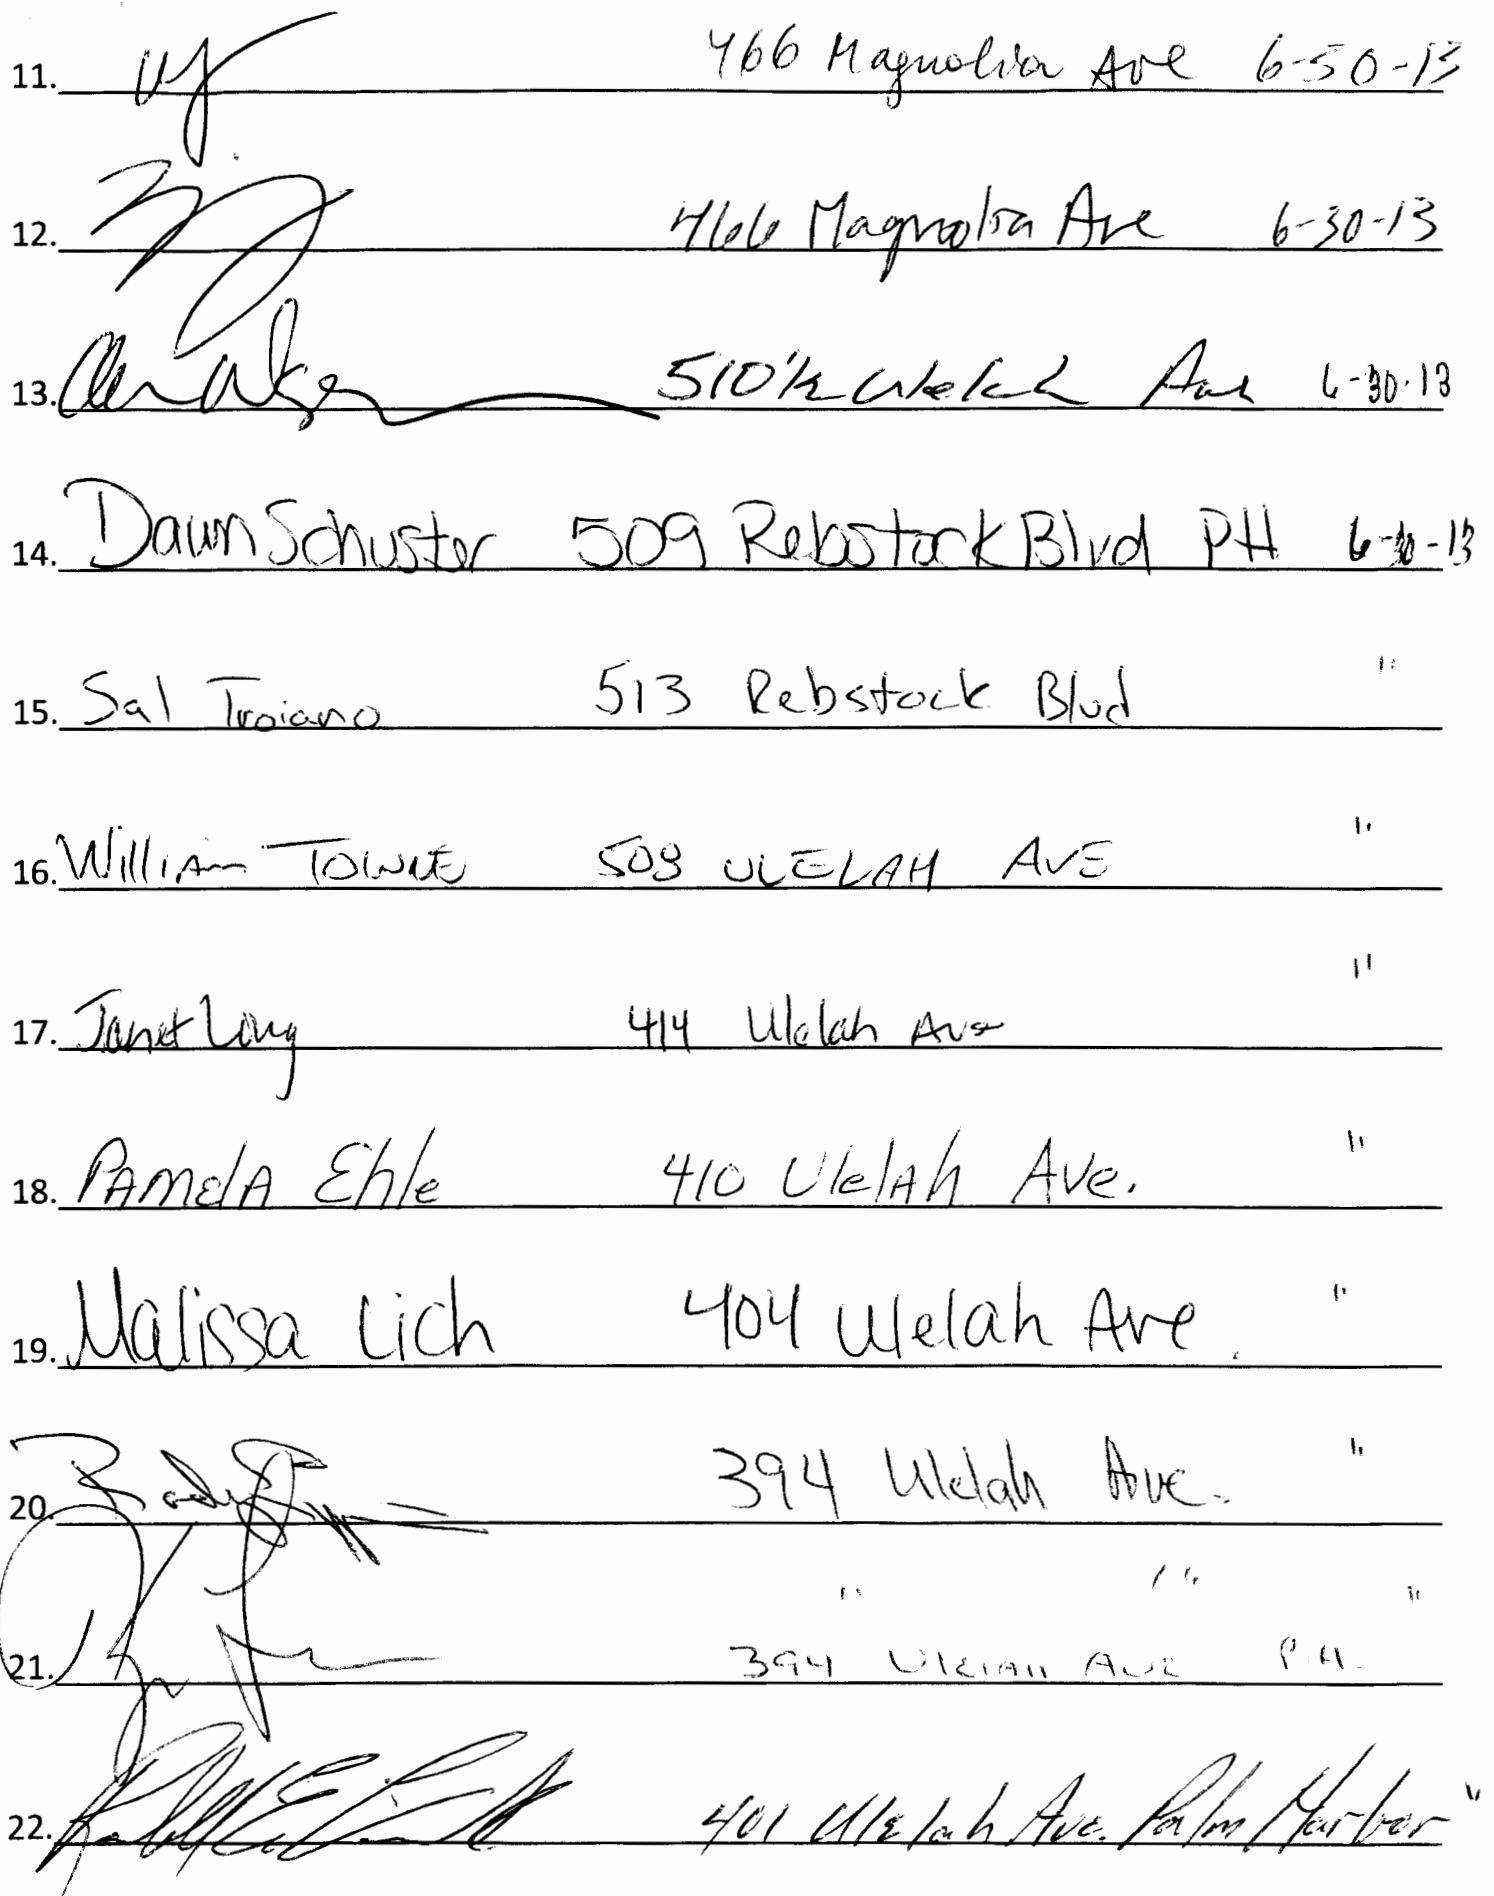 11. 466 Magnolia Ave 6-30-13
12. 466 Magnolia Ave 6-30-13
13. 510 1/2 Ulelah Ave 6-30-13
14. Dawn Schuster 509 Rebstock Blvd PH 6-30-13
15. Sal Troiano 513 Rebstock Blvd "
16. William TOWNE 508 ULELAH AVE "
17. Janet Long 414 Ulelah Ave "
18. PAMelA Ehle 410 UlelAh Ave. "
19. Malissa Lich 404 Ulelah Ave. "
20. 394 Ulelah Ave. "
" " "
21. 394 Ulelah Ave P.H.
22. 401 Ulelah Ave. Palm Harbor "